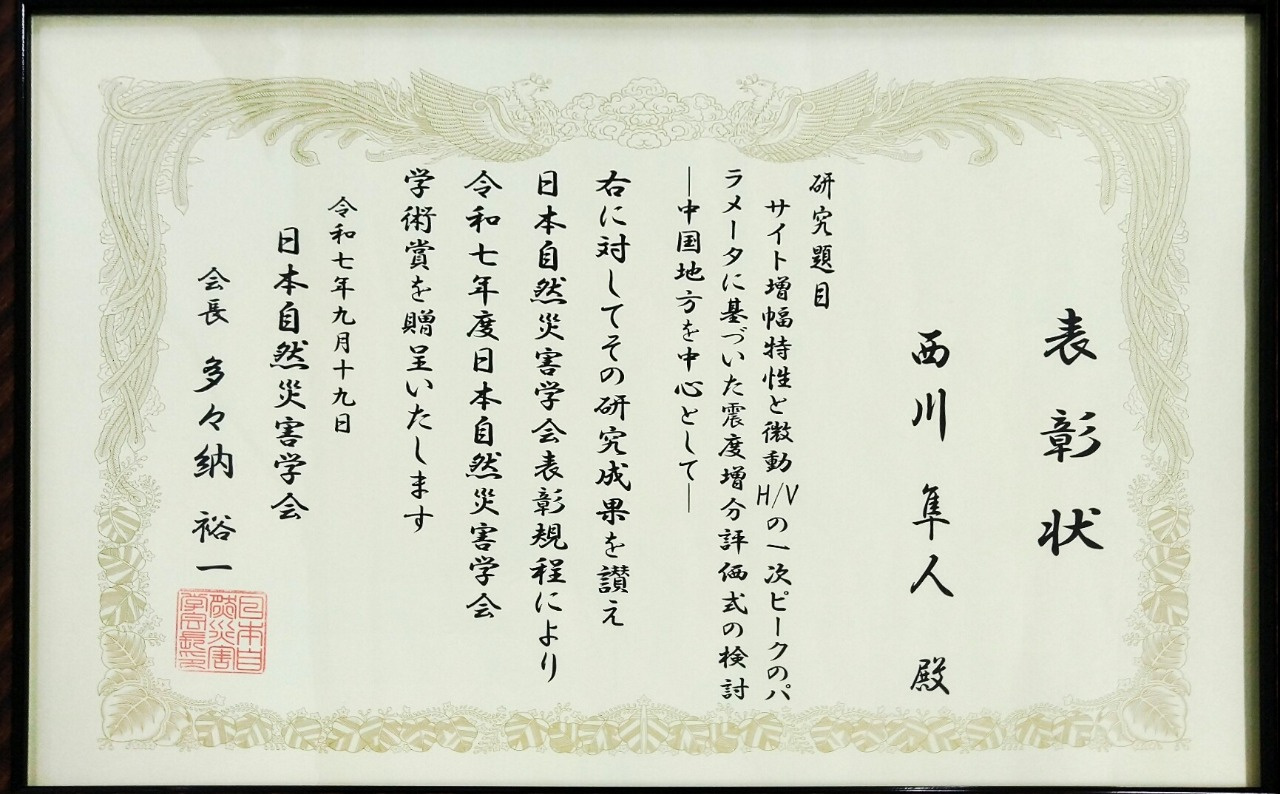 表彰状
西川 隼人 殿
研究題目
サイト増幅特性と微動H/Vの一次ピークのパ
ラメータに基づいた震度増分評価式の検討
―中国地方を中心として―
右に対してその研究成果を讃え
日本自然災害学会表彰規程により
令和七年度日本自然災害学会
学術賞を贈呈いたします
令和七年九月十九日
日本自然災害学会
会長 多々納 裕一
日本自
然災害
学会長印